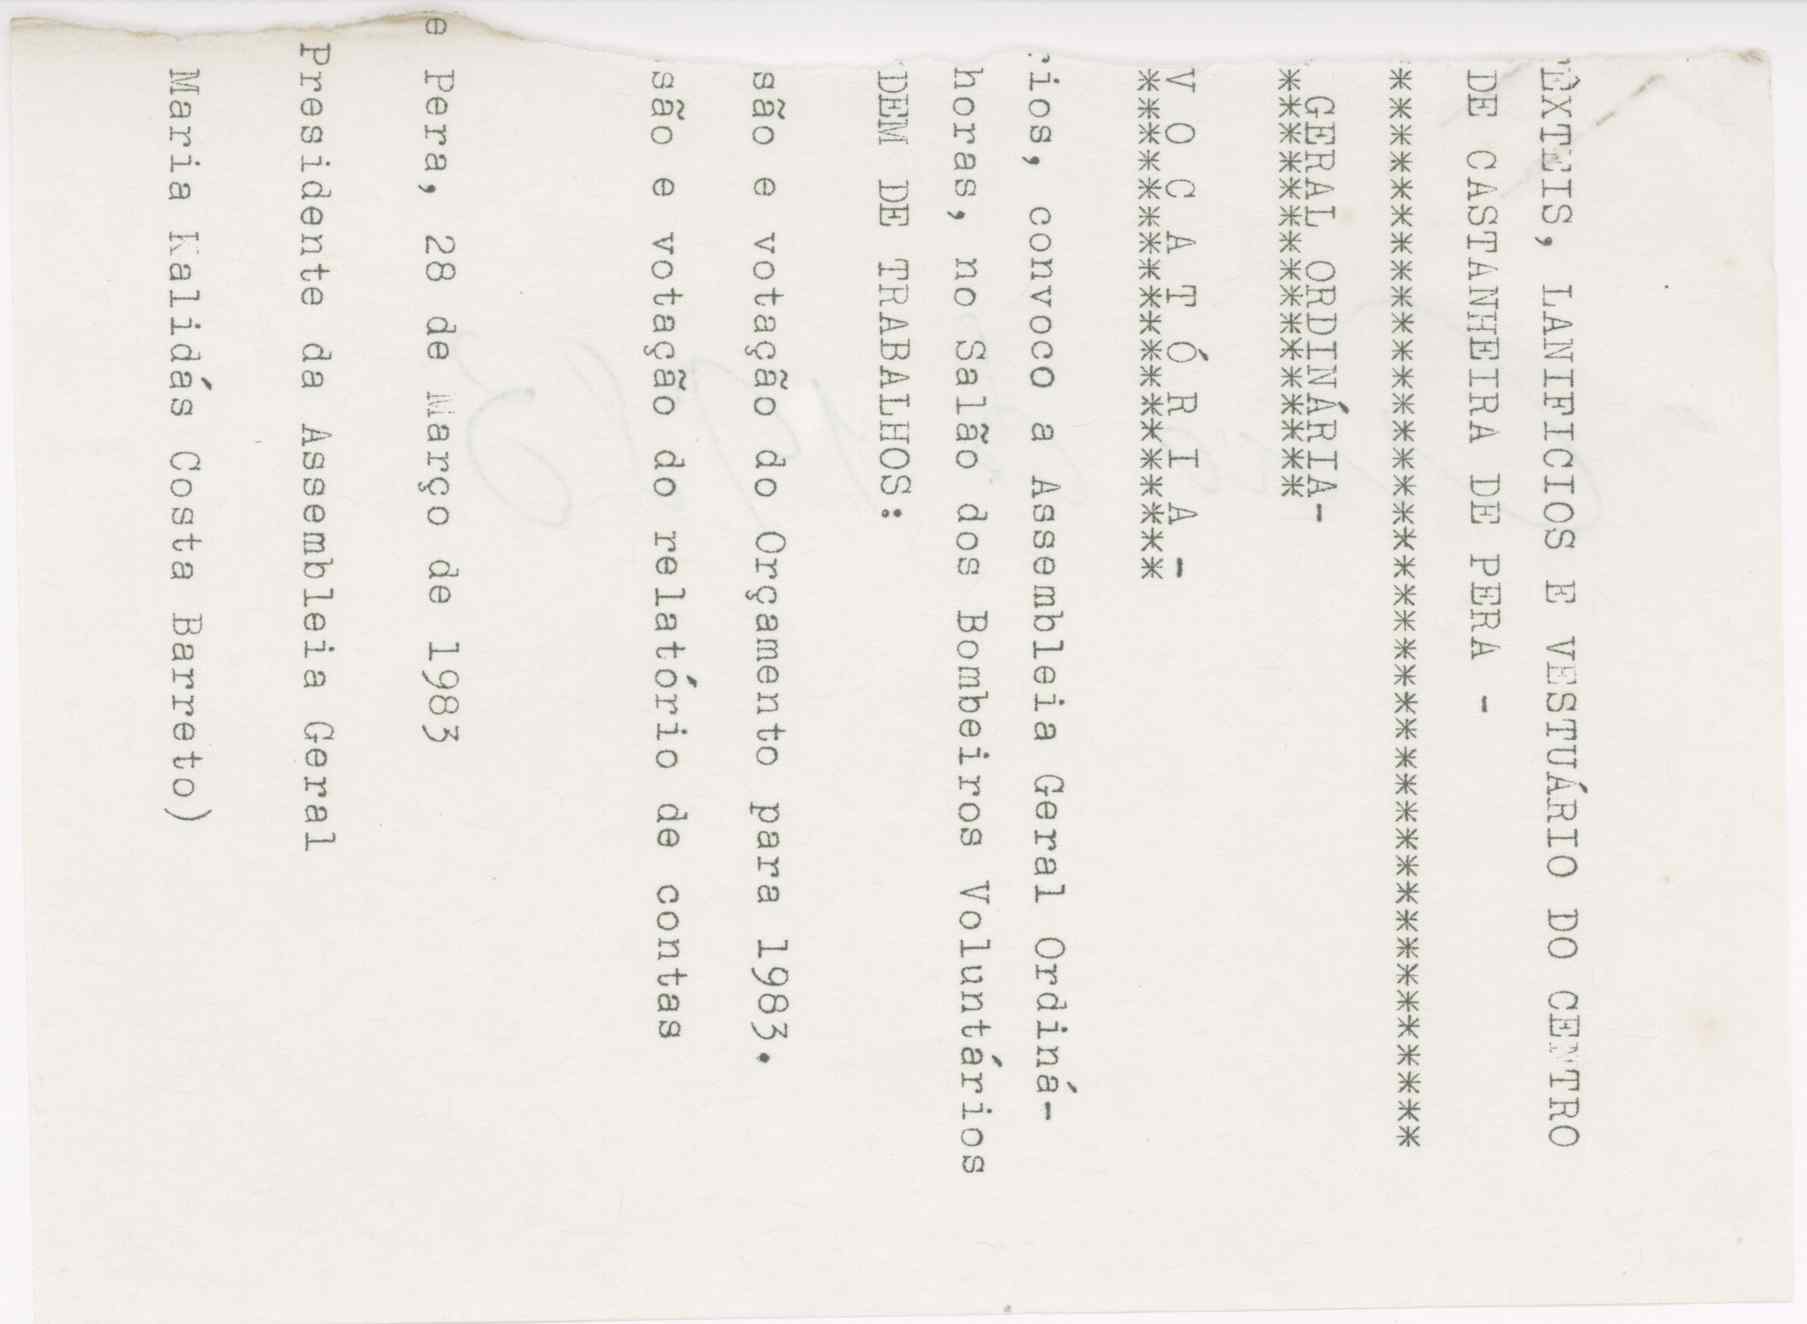 ÊXTEIS, LANIFICIOS E VESTUÁRIO DO CENTRO
DE CASTANHEIRA DE PERA -
****************************************
GERAL ORDINÁRIA-
****************
V O C A T Ó R I A -
*******************
rios, convoco a Assembleia Geral Ordiná-
horas, no Salão dos Bombeiros Voluntários
DEM DE TRABALHOS:
são e votação do Orçamento para 1983.
são e votação do relatório de contas
e Pera, 28 de Março de 1983
Presidente da Assembleia Geral
Maria Kalidás Costa Barreto)